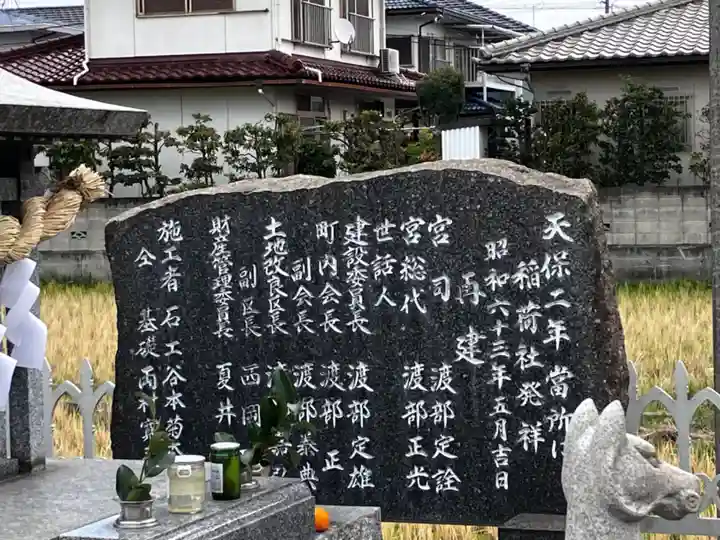 天保二年當所に
稲荷社発祥
昭和六十三年五月吉日
再建
宮司 渡部定詮
宮総代 渡部正光
世話人
建設委員長 渡部定雄
町内会長 渡部正
副会長 渡部泰典
土地改良区長
副区長 西岡
財産管理委員長 夏井
施工者 石工谷本菊
仝 基礎西村